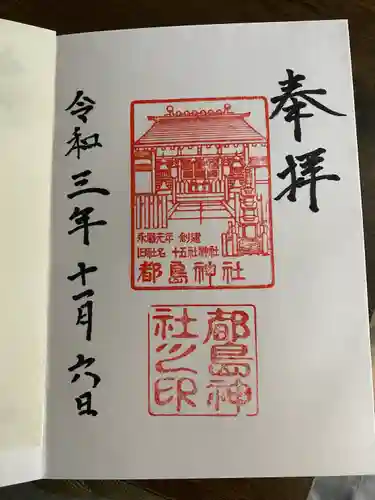 奉拝
永暦元年 創建
旧社名 十五社神社
都島神社
都島神
社之印
令和三年十一月六日